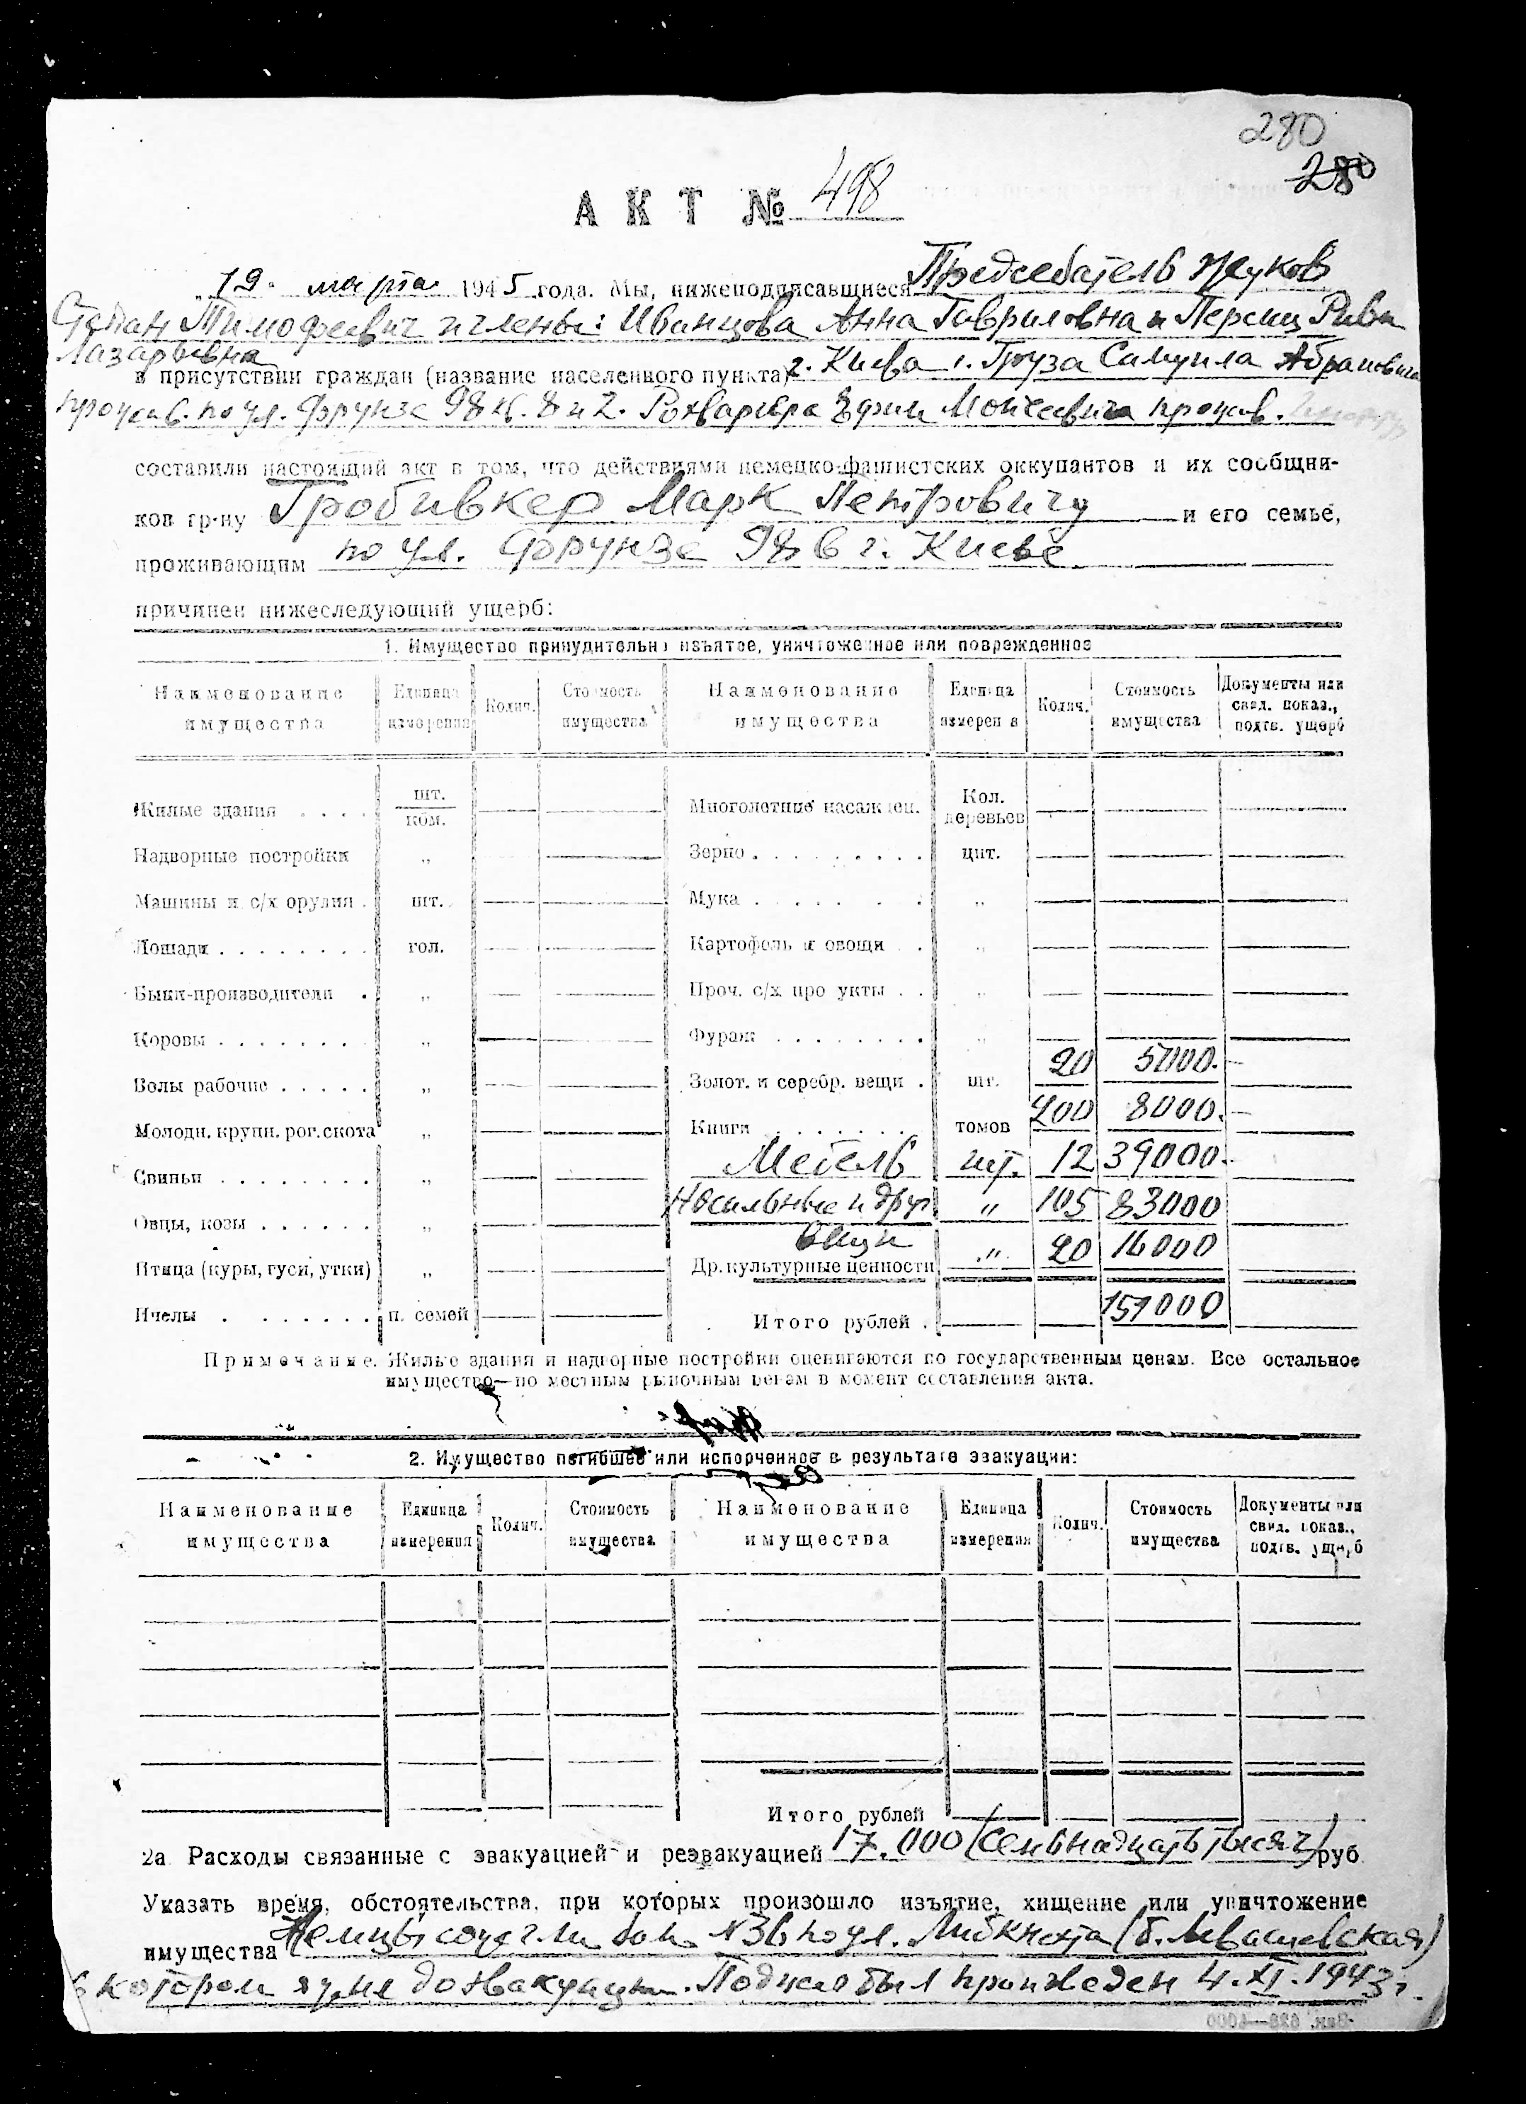 280
280
АКТ № 498
„19" марта 1945 года. Мы, нижеподписавшиеся Председатель Жуков
Степан Тимофеевич и члены: Иванцова Анна Гавриловна и Персиц Рива
Лазаревна
в присутствии граждан (название населенного пункта) г. Киева 1. Груза Самуила Абрамовича
прожив. по ул. Фрунзе 98 кв. 8 и 2. Мойсеевича прожив.
составили настоящий акт в том, что действиями немецко-фашистских оккупантов и их сообщни-
ков гр-ну Гробивкер Марк Петровичу и его семье,
проживающим по ул. Фрунзе 98 в г. Киеве
причинен нижеследующий ущерб:
1. Имущество принудительно изъятое, уничтоженное или поврежденное
Наименование имущества Единица измерения Колич. Стоимость имущества Наименование имущества Единица измерен я Колич. Стоимость имущества Документы или свид. показ., подтв. ущерб
Жилые здания . . . . шт. ком. Многолетние насажден. Кол. деревьев
Надворные постройки „ Зерно . . . . . . . . . цнт.
Машины и с/х орудия . шт. Мука . . . . . . . „
Лошади . . . . . . . . гол. Картофель и овощи . . „
Быки-производители . „ Проч. с/х про укты . . „
Коровы . . . . . . . . „ Фураж . . . . . . . . „
Волы рабочие . . . . . „ Золот. и серебр. вещи . шт. 20 5000.-
Молодн. крупн. рог. скота „ Книги . . . . . . . томов 200 8000.-
Свиньи . . . . . . . . „ Мебель шт. 12 39000.-
Овцы, козы . . . . . . „ Носильные и друг „ 105 83000
вещи
Птица (куры, гуси, утки) „ Др. культурные ценности „ 20 16000
Пчелы . . . . . . . п. семей Итого рублей . 151000
Примечание. Жилые здания и надворные постройки оцениваются по государственным ценам. Все остальное
имущество—по местным рыночным ценам в момент составления акта.
2. Имущество погибшее или испорченное в результате эвакуации:
Наименование имущества Единица измерения Колич. Стоимость имущества Наименование имущества Единица измерения Колич. Стоимость имущества Документы или свид. показ., подтв. ущерб
Итого рублей
2а Расходы связанные с эвакуацией и реэвакуацией 17.000 (Семьнадцать тысяч) руб
Указать время, обстоятельства, при которых произошло изъятие, хищение или уничтожение
имущества Немцы сожгли дом № 36 по ул. Либкнехта (б. Левашевская)
в котором я жил до эвакуации. Поджог был произведен 4.XI.1943 г.